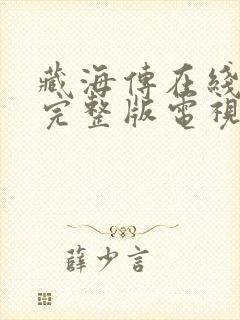 藏海傳在綫
完整版電視
薛少言